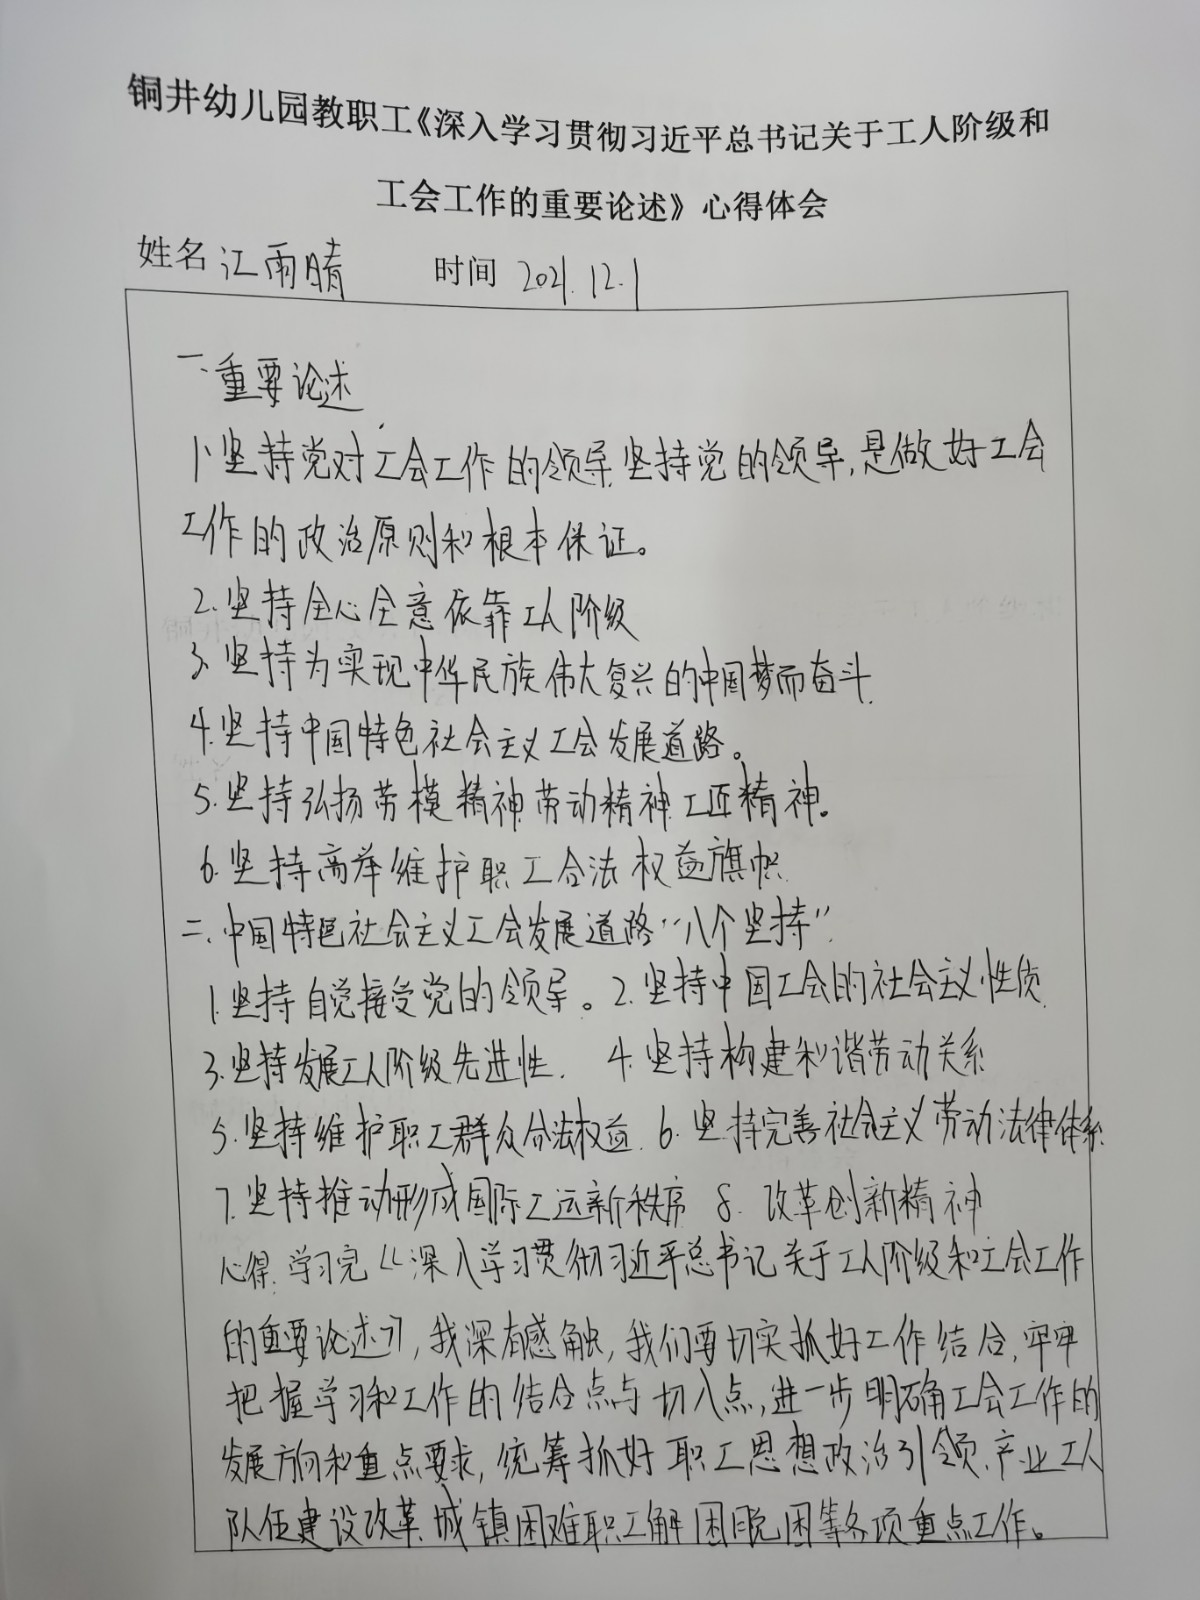 铜井幼儿园教职工《深入学习贯彻习近平总书记关于工人阶级和
工会工作的重要论述》心得体会
姓名 江雨晴 时间 2021.12.1
一、重要论述
1、坚持党对工会工作的领导,坚持党的领导,是做好工会
工作的政治原则和根本保证。
2.坚持全心全意依靠工人阶级
3.坚持为实现中华民族伟大复兴的中国梦而奋斗.
4.坚持中国特色社会主义工会发展道路。
5.坚持弘扬劳模精神,劳动精神,工匠精神。
6.坚持高举维护职工合法权益旗帜.
二、中国特色社会主义工会发展道路“八个坚持”
1.坚持自觉接受党的领导。2.坚持中国工会的社会主义性质.
3.坚持发展工人阶级先进性. 4.坚持构建和谐劳动关系
5.坚持维护职工群众合法权益. 6.坚持完善社会主义劳动法律体系
7.坚持推动形成国际工运新秩序 8.改革创新精神
心得:学习完《深入学习贯彻习近平总书记关于工人阶级和工会工作
的重要论述》,我深有感触,我们要切实抓好工作结合,牢牢
把握学习和工作的结合点与切入点,进一步明确工会工作的
发展方向和重点要求,统筹抓好职工思想政治引领、产业工人
队伍建设改革,城镇困难职工解困脱困等各项重点工作。